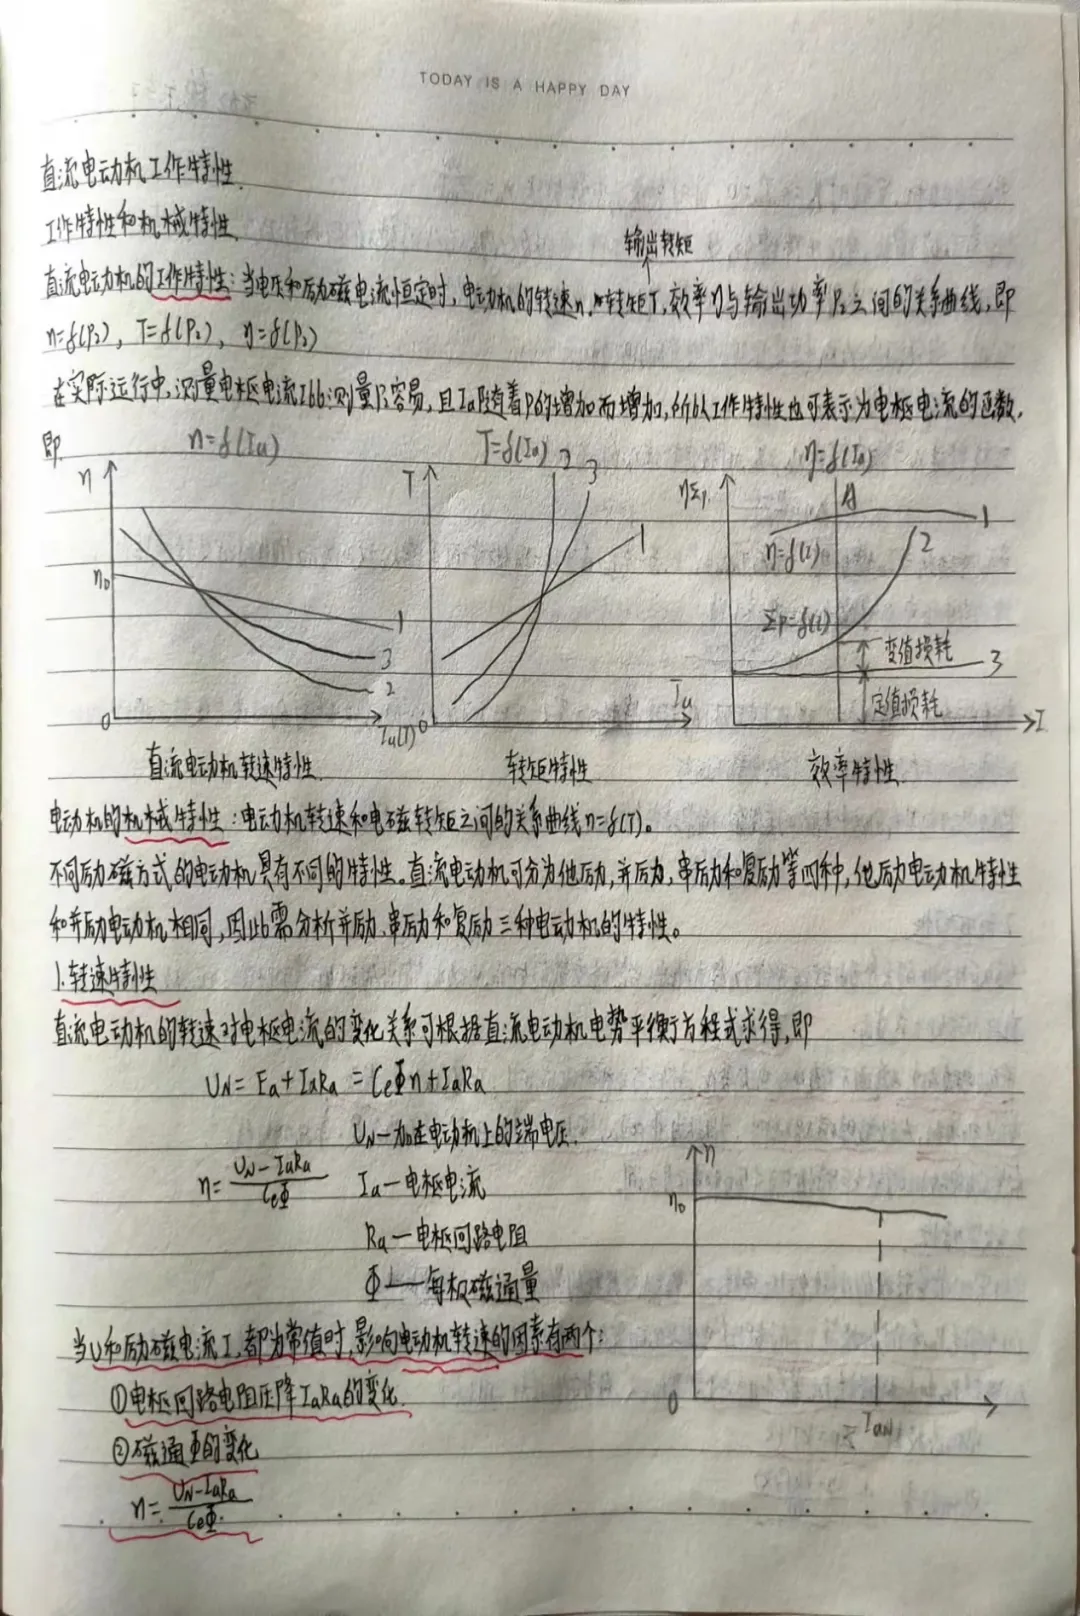 TODAY IS A HAPPY DAY
直流电动机工作特性.
工作特性和机械特性
输出转矩
直流电动机的工作特性:当电压和励磁电流恒定时,电动机的转速n,转矩T,效率η与输出功率P₂之间的关系曲线,即
n=f(P₂), T=f(P₂), η=f(P₂)
在实际运行中,测量电枢电流Ia比测量P₂容易,且Ia随着P的增加而增加,所以工作特性也可表示为电枢电流的函数.
即 n=f(Ia) T=f(Ia) η=f(Ia)
n n₀ 1 3 2 0 Ia(I)
T 2 3 1 0 Ia
ηΣp A 1 2 η=f(I) Σp=f(I) 变值损耗 3 定值损耗 I
直流电动机转速特性 转矩特性 效率特性
电动机的机械特性:电动机转速和电磁转矩之间的关系曲线n=f(T)。
不同励磁方式的电动机具有不同的特性。直流电动机可分为他励,并励,串励和复励等四种,他励电动机特性
和并励电动机相同,因此需分析并励,串励和复励三种电动机的特性。
1.转速特性
直流电动机的转速对电枢电流的变化关系可根据直流电动机电势平衡方程式求得,即
UN=Ea+IaRa=CeΦn+IaRa
UN—加在电动机上的端电压.
n=(UN-IaRa)/(CeΦ) Ia—电枢电流
Ra—电枢回路电阻
Φ—每极磁通量
n n₀ 0 IaN
当U和励磁电流I,都为常值时,影响电动机转速的因素有两个:
①电枢回路电阻压降IaRa的变化.
②磁通Φ的变化
n=(UN-IaRa)/(CeΦ)